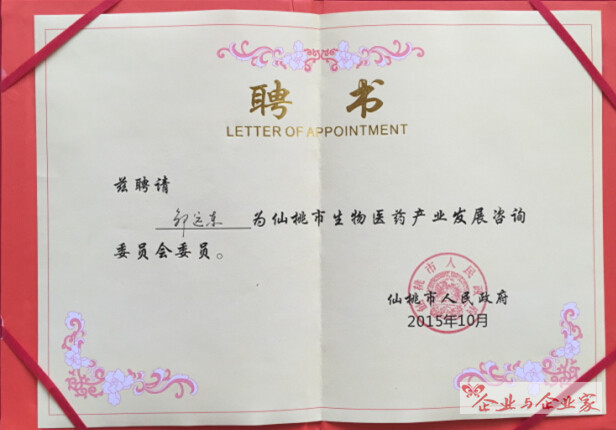 聘 书
LETTER OF APPOINTMENT
兹聘请
邹远东 为仙桃市生物医药产业发展咨询
委员会委员。
仙桃市人民政府
仙桃市人民政府
2015年10月
企业与企业家